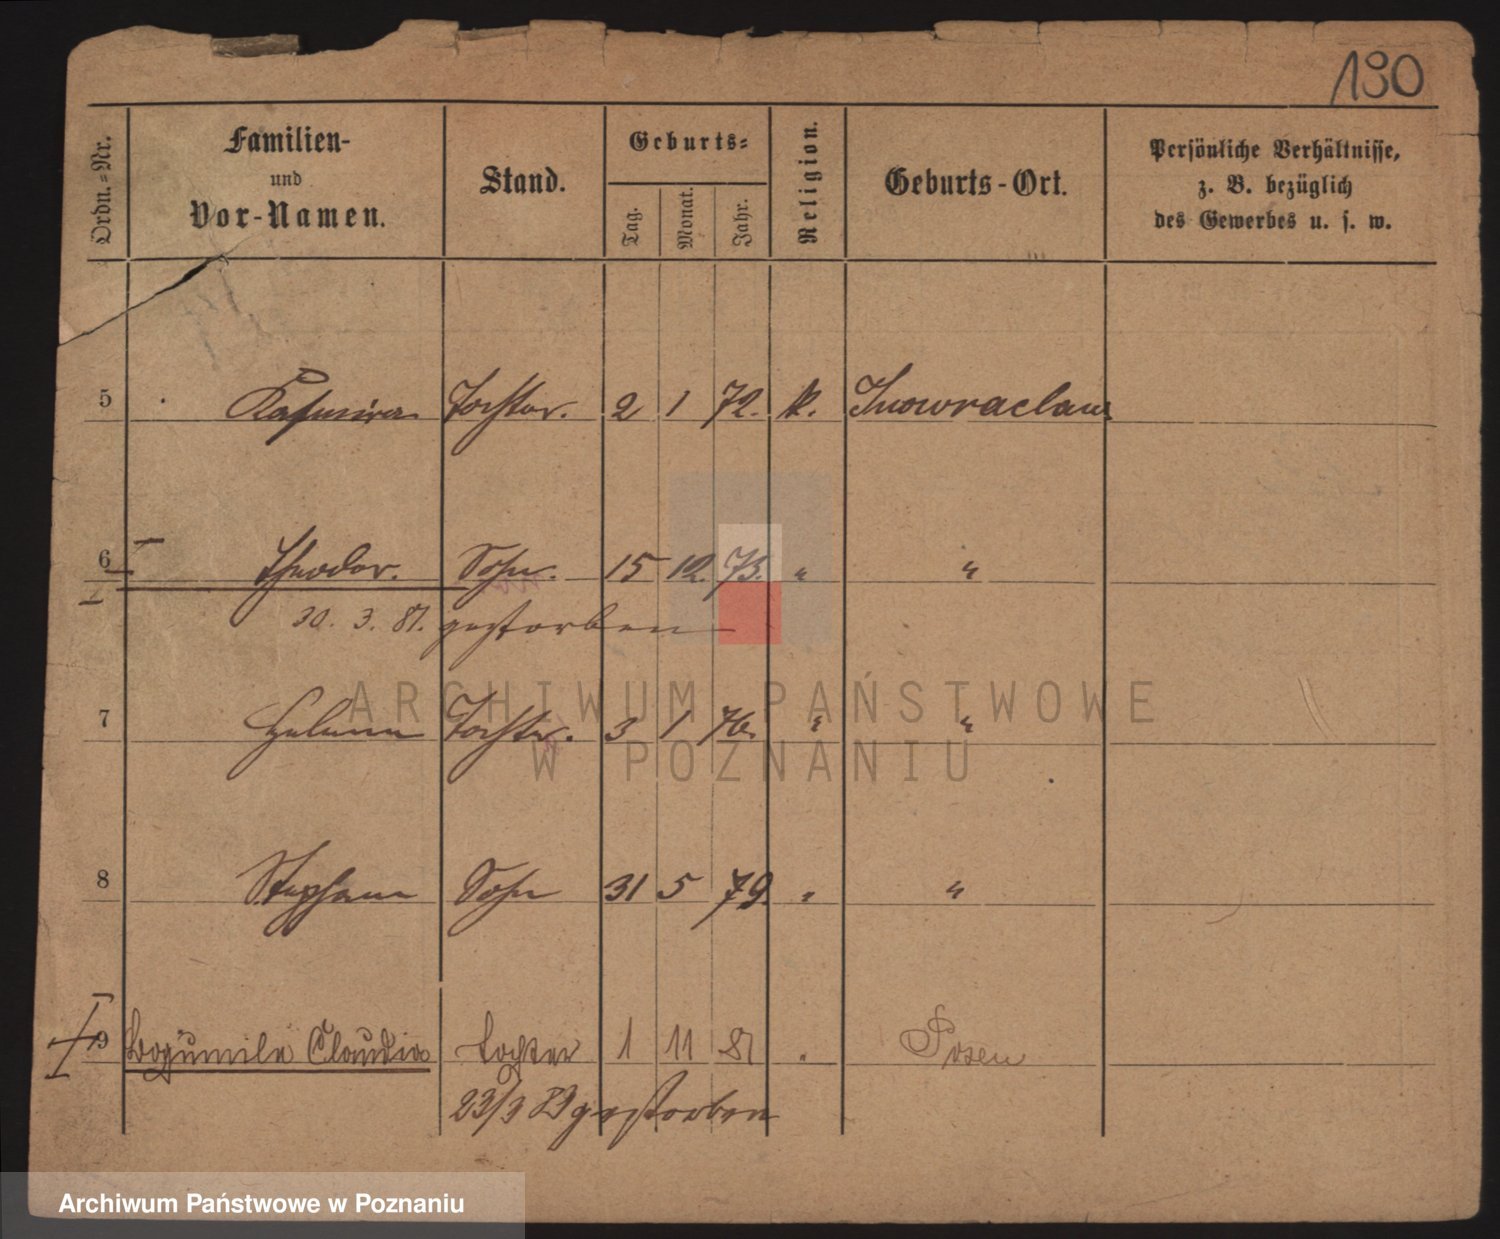 190
Ordn.-Nr.
Familien-
und
Vor-Namen.
Stand.
Geburts-
Tag.
Monat.
Jahr.
Religion.
Geburts-Ort.
Persönliche Verhältnisse,
z. B. bezüglich
des Gewerbes u. s. w.
5 Kasimira Tochter. 2 1 72. k. Inowraclaw
6 Theodor. Sohn. 15 12. 73. " "
30. 3. 81. gestorben
7 Helena Tochter. 3 1 76. " "
8 Stephan Sohn 31 5 79. " "
9 Bogumila Claudia Tochter 1 11 81 " Posen
23/3 83 gestorben
ARCHIWUM PAŃSTWOWE
W POZNANIU
Archiwum Państwowe w Poznaniu